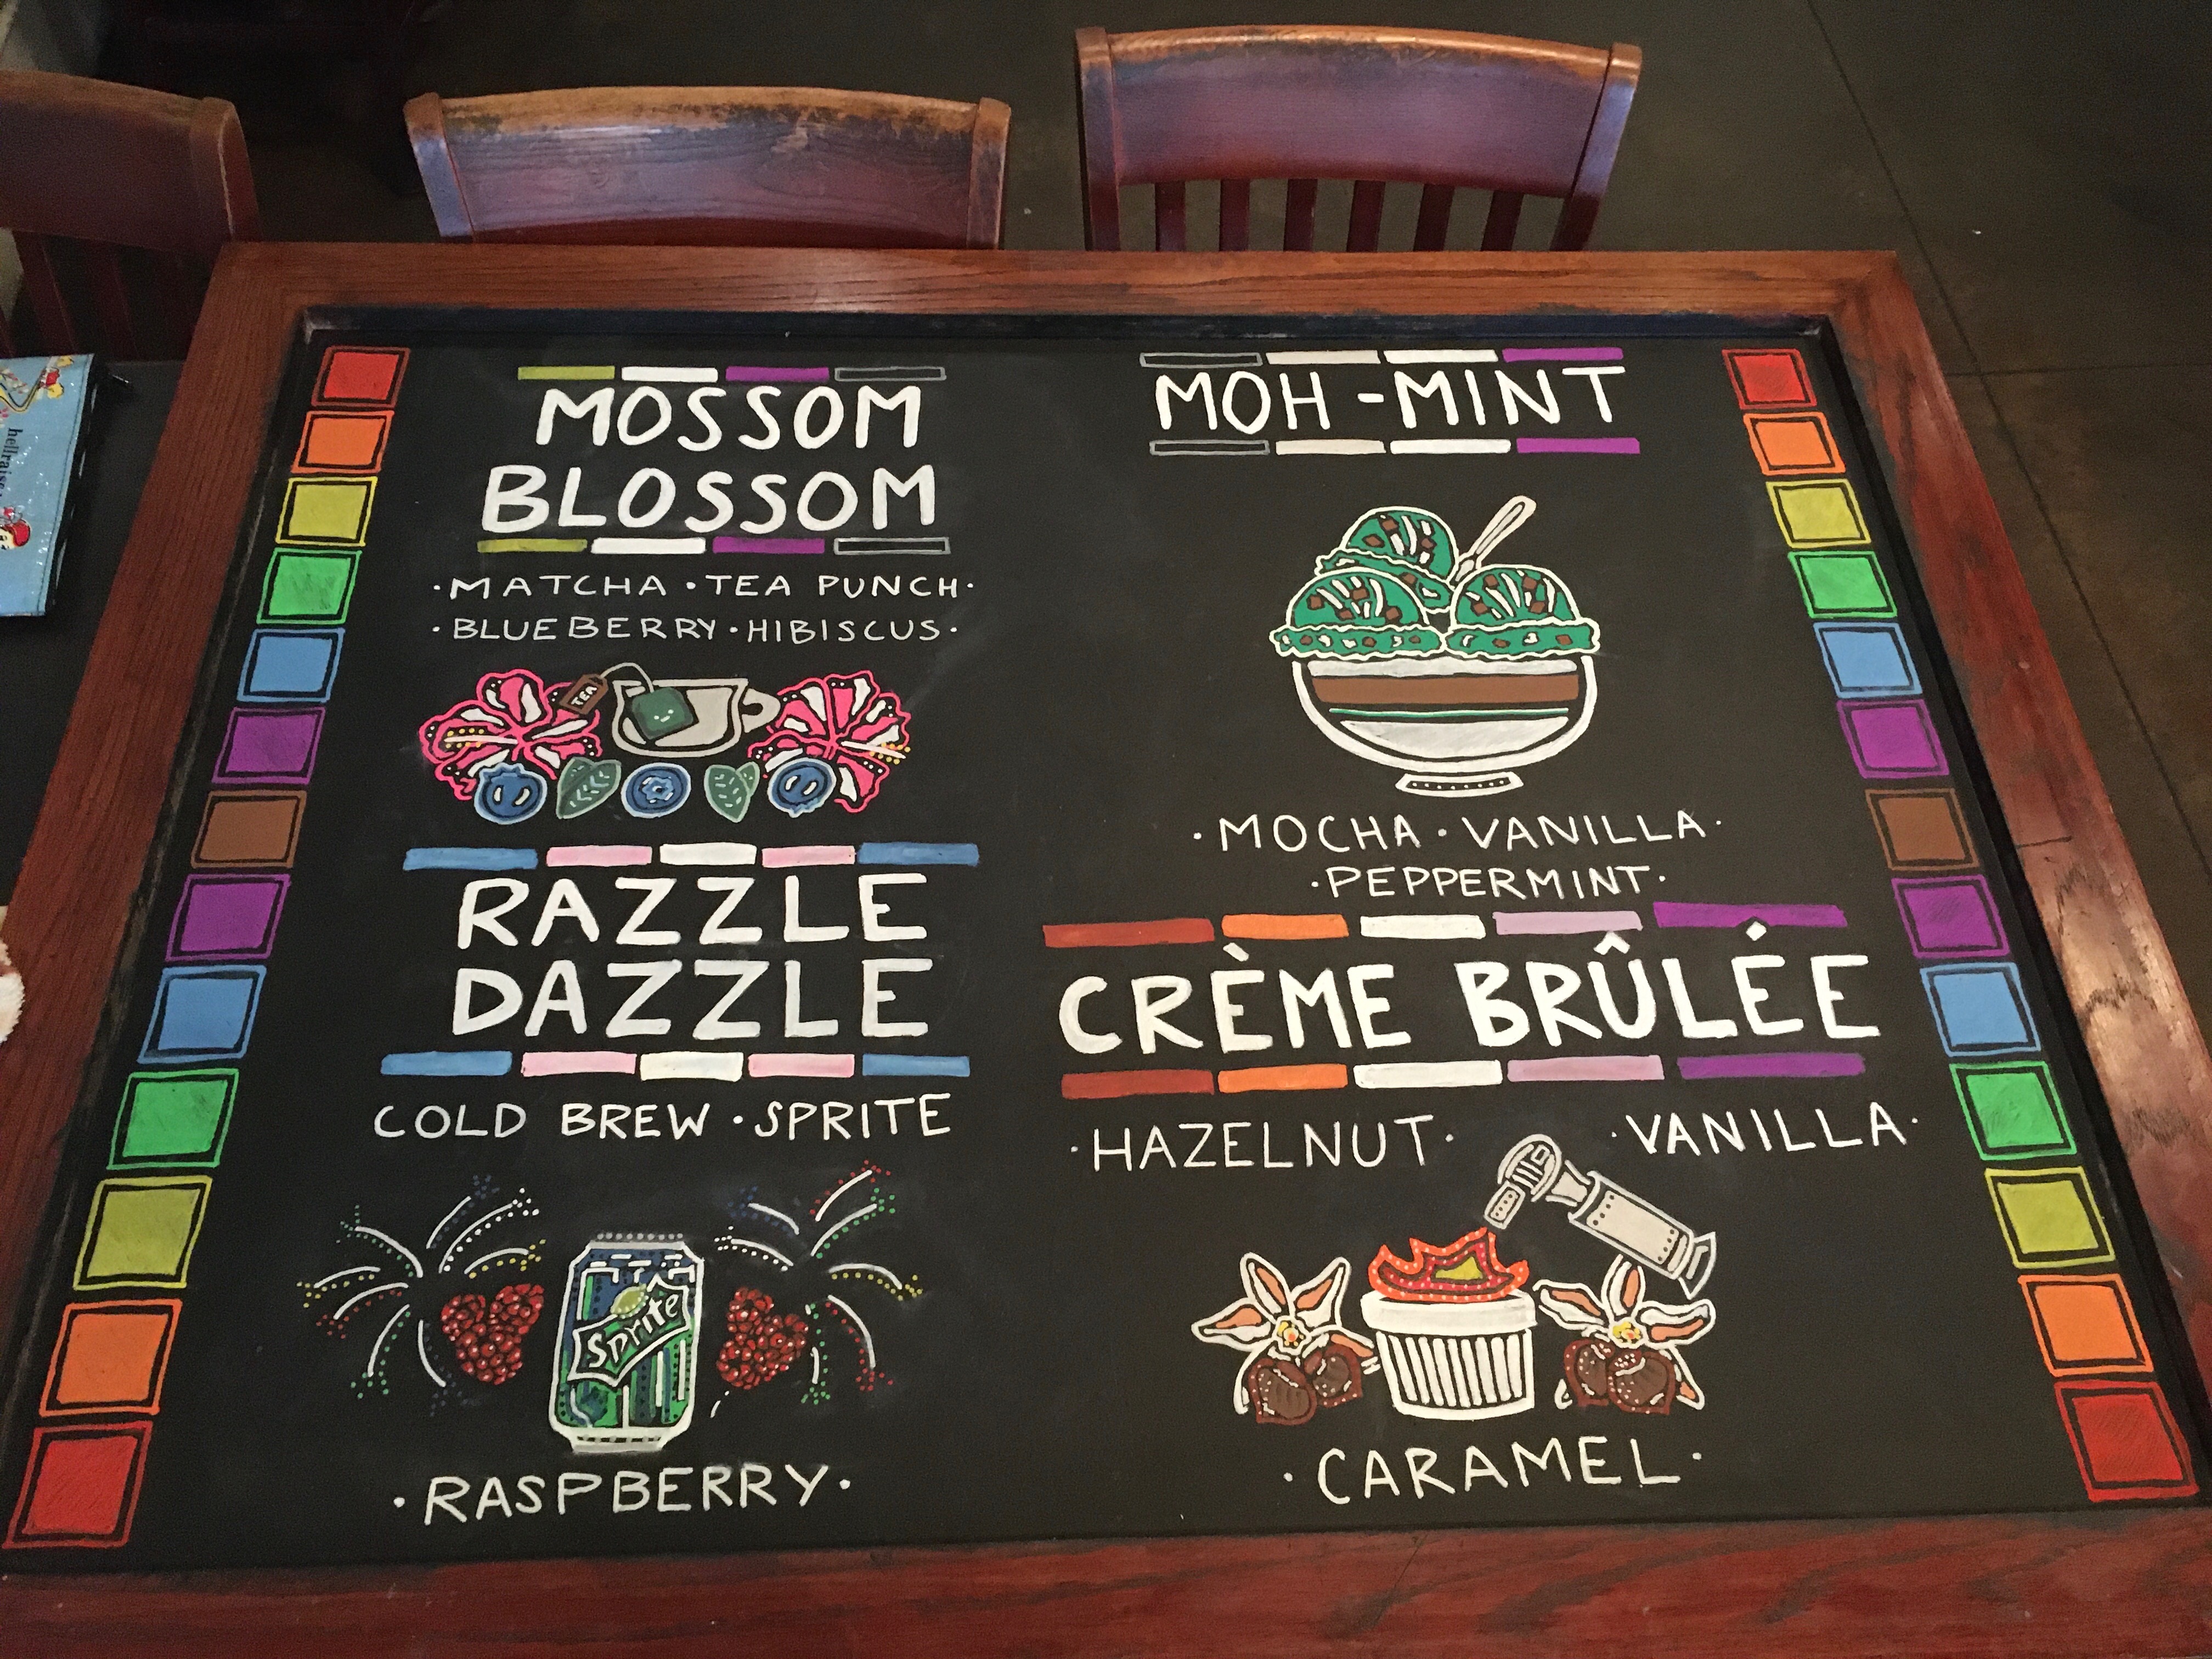 MOSSOM
BLOSSOM
·MATCHA·TEA PUNCH·
·BLUEBERRY·HIBISCUS·
TEA
RAZZLE
DAZZLE
COLD BREW·SPRITE
Sprite
·RASPBERRY·
MOH-MINT
·MOCHA·VANILLA·
·PEPPERMINT·
CRÈME BRÛLÉE
·HAZELNUT· ·VANILLA·
·CARAMEL·